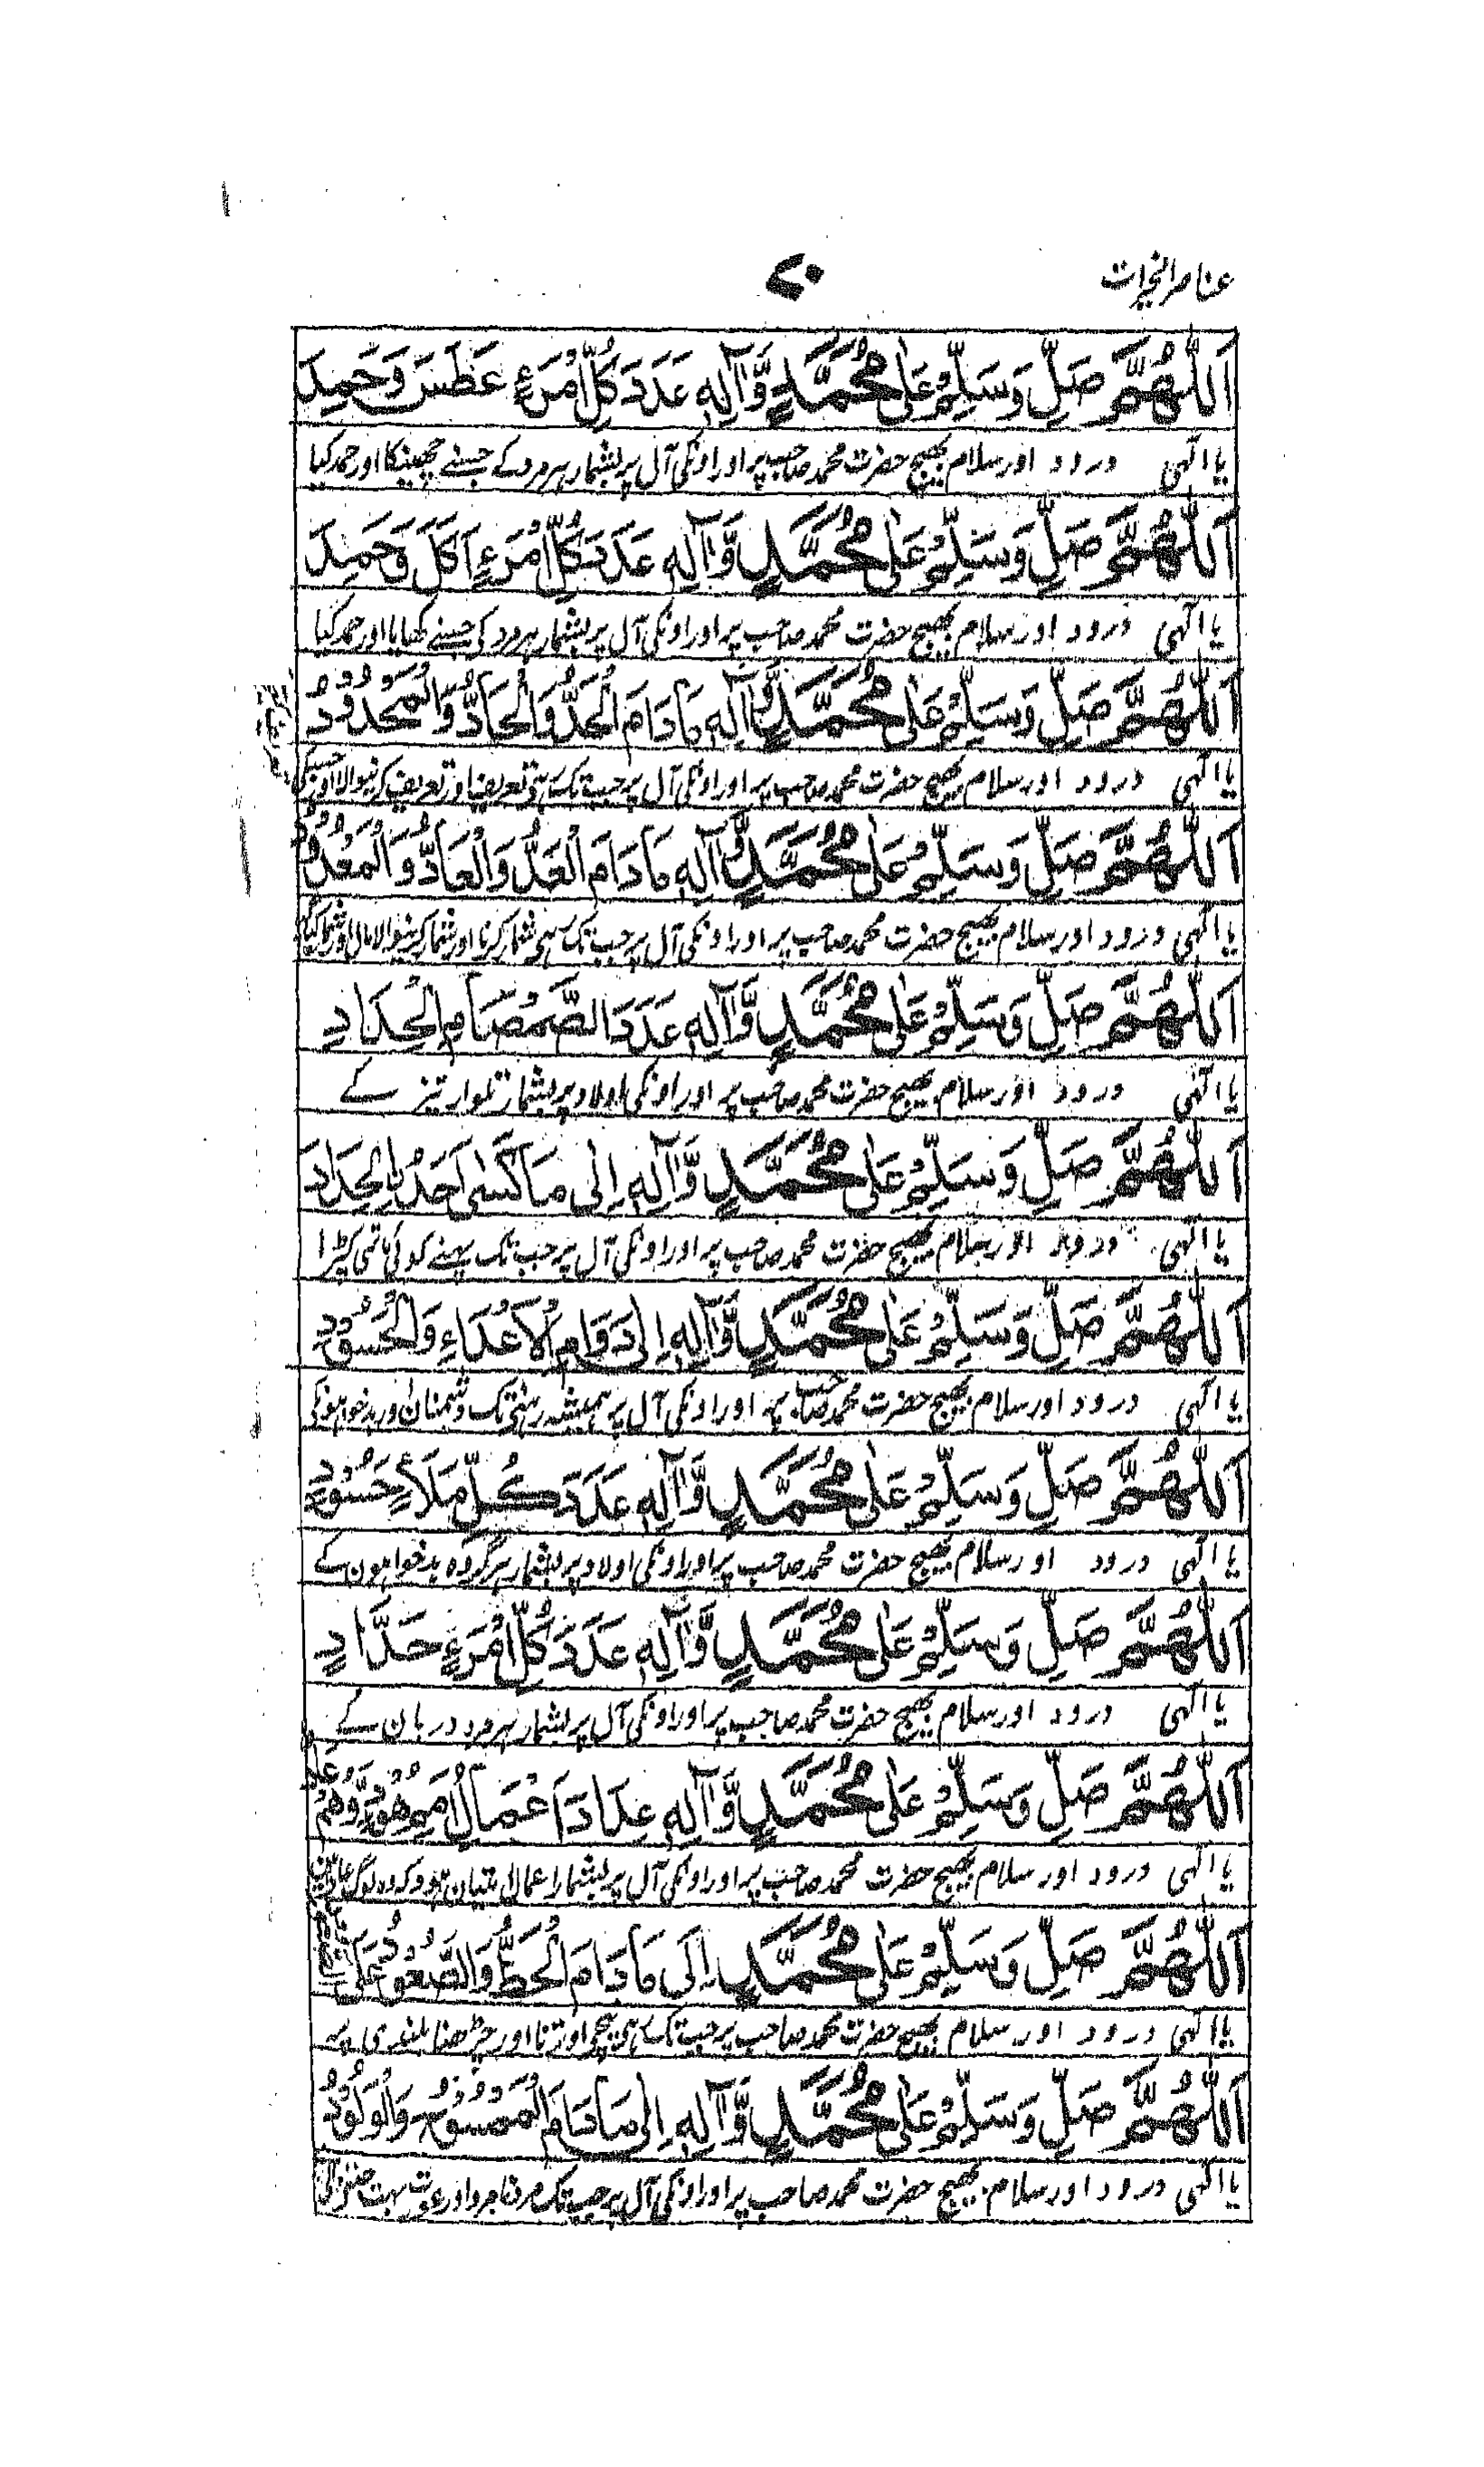 عناصر الخیرات
۲۰
اَللّٰهُمَّ صَلِّ وَسَلِّمْ عَلٰى مُحَمَّدٍ وَّاٰلِهٖ عَدَدَ كُلِّ امْرَءٍ عَطَسَ وَحَمِدَ
یا الٰہی درود اور سلام بھیج حضرت محمد صاحب پر اور اونکی آل پر بشمار ہر مرد کے جسنے چھینکا اور حمد کیا
اَللّٰهُمَّ صَلِّ وَسَلِّمْ عَلٰى مُحَمَّدٍ وَّاٰلِهٖ عَدَدَ كُلِّ امْرَءٍ اَكَلَ وَحَمِدَ
یا الٰہی درود اور سلام بھیج حضرت محمد صاحب پر اور اونکی آل پر بشمار ہر مرد کی جسنے کھایا اور حمد کیا
اَللّٰهُمَّ صَلِّ وَسَلِّمْ عَلٰى مُحَمَّدٍ وَّاٰلِهٖ مَا دَامَ الْحَدُّ وَالْحَادُّ وَالْمَحْدُوْدُ
یا الٰہی درود اور سلام بھیج حضرت محمد صاحب پر اور اونکی آل پر جب تک رہی تعریف اور تعریف کرنیوالا اور جسکی
اَللّٰهُمَّ صَلِّ وَسَلِّمْ عَلٰى مُحَمَّدٍ وَّاٰلِهٖ مَا دَامَ الْعَدُّ وَالْعَادُّ وَالْمَعْدُوْدُ
یا الٰہی درود اور سلام بھیج حضرت محمد صاحب پر اور اونکی آل پر جب تک رہی شمار کرنا اور شمار کرنیوالا
اَللّٰهُمَّ صَلِّ وَسَلِّمْ عَلٰى مُحَمَّدٍ وَّاٰلِهٖ عَدَدَ الصَّمْصَامِ الْحِدَادِ
یا الٰہی درود اور سلام بھیج حضرت محمد صاحب پر اور اونکی اولاد پر بشمار تلوار تیز کے
اَللّٰهُمَّ صَلِّ وَسَلِّمْ عَلٰى مُحَمَّدٍ وَّاٰلِهٖ اِلٰى مَا كَسٰى اَحَدُ نِ الْحِدَادَ
یا الٰہی درود اور سلام بھیج حضرت محمد صاحب پر اور اونکی آل پر جب تک پہنے کوئی ماتمی کپڑا
اَللّٰهُمَّ صَلِّ وَسَلِّمْ عَلٰى مُحَمَّدٍ وَّاٰلِهٖ اِلٰى دَوَامِ الْاَعْدَاءِ وَالْحُسُوْدِ
یا الٰہی درود اور سلام بھیج حضرت محمد صاحب پر اور اونکی آل پر ہمیشہ رہنی تک دشمنان اور بدخواہونکی
اَللّٰهُمَّ صَلِّ وَسَلِّمْ عَلٰى مُحَمَّدٍ وَّاٰلِهٖ عَدَدَ كُلِّ مَلَاءٍ حَسُوْدٍ
یا الٰہی درود اور سلام بھیج حضرت محمد صاحب پر اور اونکی اولاد پر بشمار ہر گروہ بدخواہون کے
اَللّٰهُمَّ صَلِّ وَسَلِّمْ عَلٰى مُحَمَّدٍ وَّاٰلِهٖ عَدَدَ كُلِّ امْرَءٍ حَدَّادٍ
یا الٰہی درود اور سلام بھیج حضرت محمد صاحب پر اور اونکی آل پر بشمار ہر مرد دربان کے
اَللّٰهُمَّ صَلِّ وَسَلِّمْ عَلٰى مُحَمَّدٍ وَّاٰلِهٖ عِدَادَ اَعْمَالِ اُمَمِ هُوْدٍ وَّهُمْ عَادٌ
یا الٰہی درود اور سلام بھیج حضرت محمد صاحب پر اور اونکی آل پر بشمار اعمال امتیان ہود کہ وہ لوگ عاد ہین
اَللّٰهُمَّ صَلِّ وَسَلِّمْ عَلٰى مُحَمَّدٍ اِلٰى مَا دَامَ الْحَطُّ وَالصُّعُوْدُ عَلٰى
یا الٰہی درود اور سلام بھیج حضرت محمد صاحب پر جب تک رہی نیچی اوترنا اور چڑھنا بلندی پر
اَللّٰهُمَّ صَلِّ وَسَلِّمْ عَلٰى مُحَمَّدٍ وَّاٰلِهٖ اِلٰى مَا دَامَ الْمَمْسُوْدُ وَالْوَلُوْدُ
یا الٰہی درود اور سلام بھیج حضرت محمد صاحب پر اور اونکی آل پر جب تک اور عورت بہت جننی والی